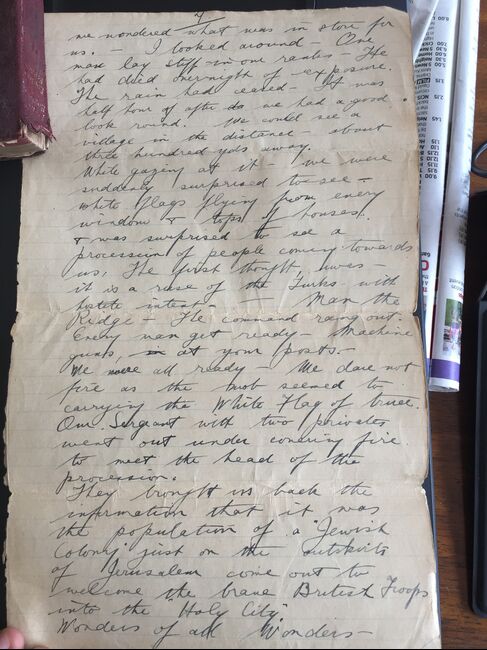 we wondered what was in store for
us. — I looked around — One
man lay stiff in our ranks — He
had died overnight of exposure.
The rain had ceased — It was
half hour of after as we had a good
look round. We could see a
village in the distance — about
three hundred yds away.
While gazing at it — we were
suddenly surprised to see —
white flags flying from every
window & tops of houses.
& was surprised to see a
procession of people coming towards
us, The first thought, was
it is a ruse of the Turks with
hostile intent. — Man the
Ridge — The command rang out.
Every man get ready — Machine
guns, at your posts. —
We were all ready — We dare not
fire as the mob seemed to
carrying the White Flag of truce.
Our Sergeant with two privates
went out under covering fire
to meet the head of the
procession.
They brought us back the
information that it was
the population of a "Jewish
Colony" just on the outskirts
of Jerusalem come out to
welcome the brave British Troops
into the "Holy City"
Wonders of all Wonders —